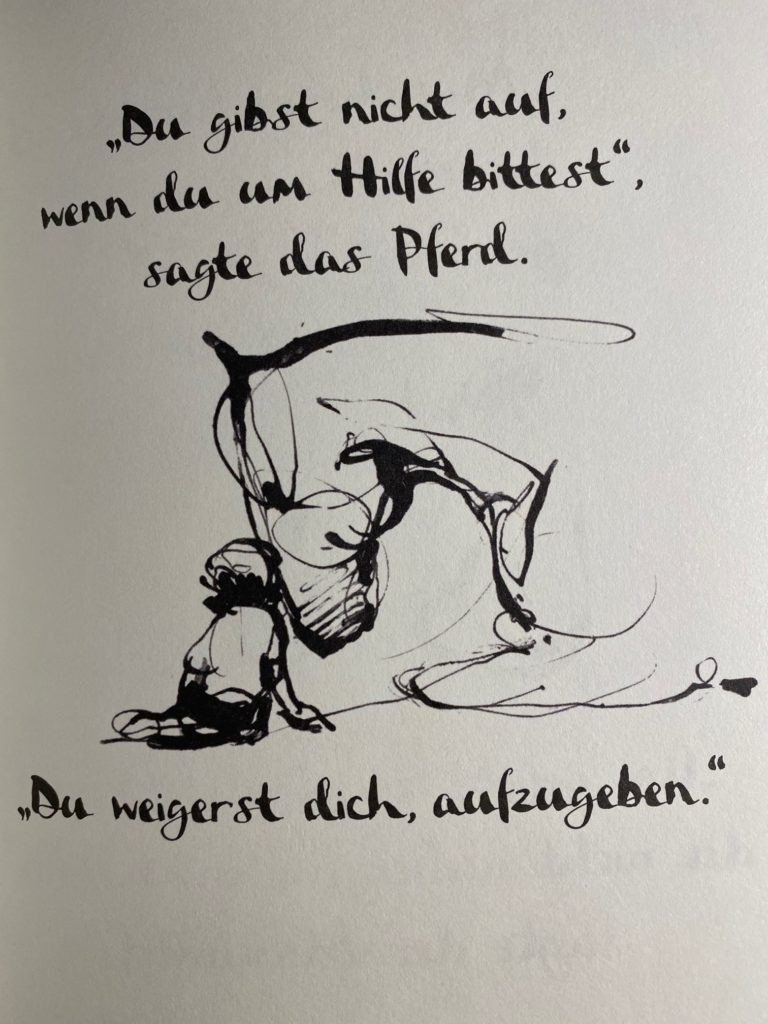 „Du gibst nicht auf,
wenn du um Hilfe bittest“,
sagte das Pferd.
„Du weigerst dich, aufzugeben.“